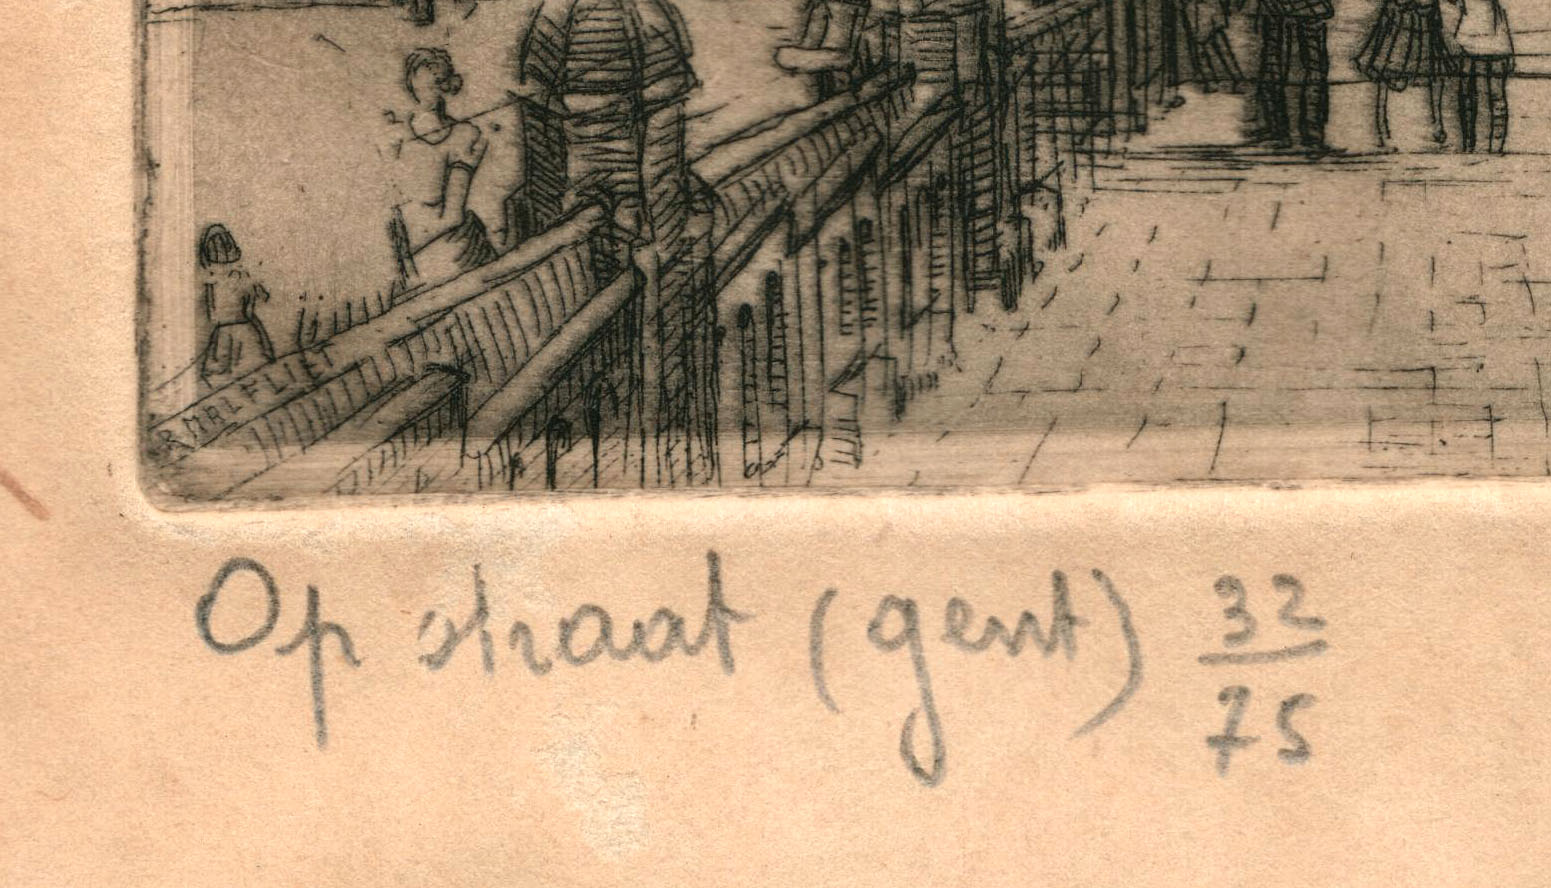 R MALFLIET
Op straat (gent) 32/75